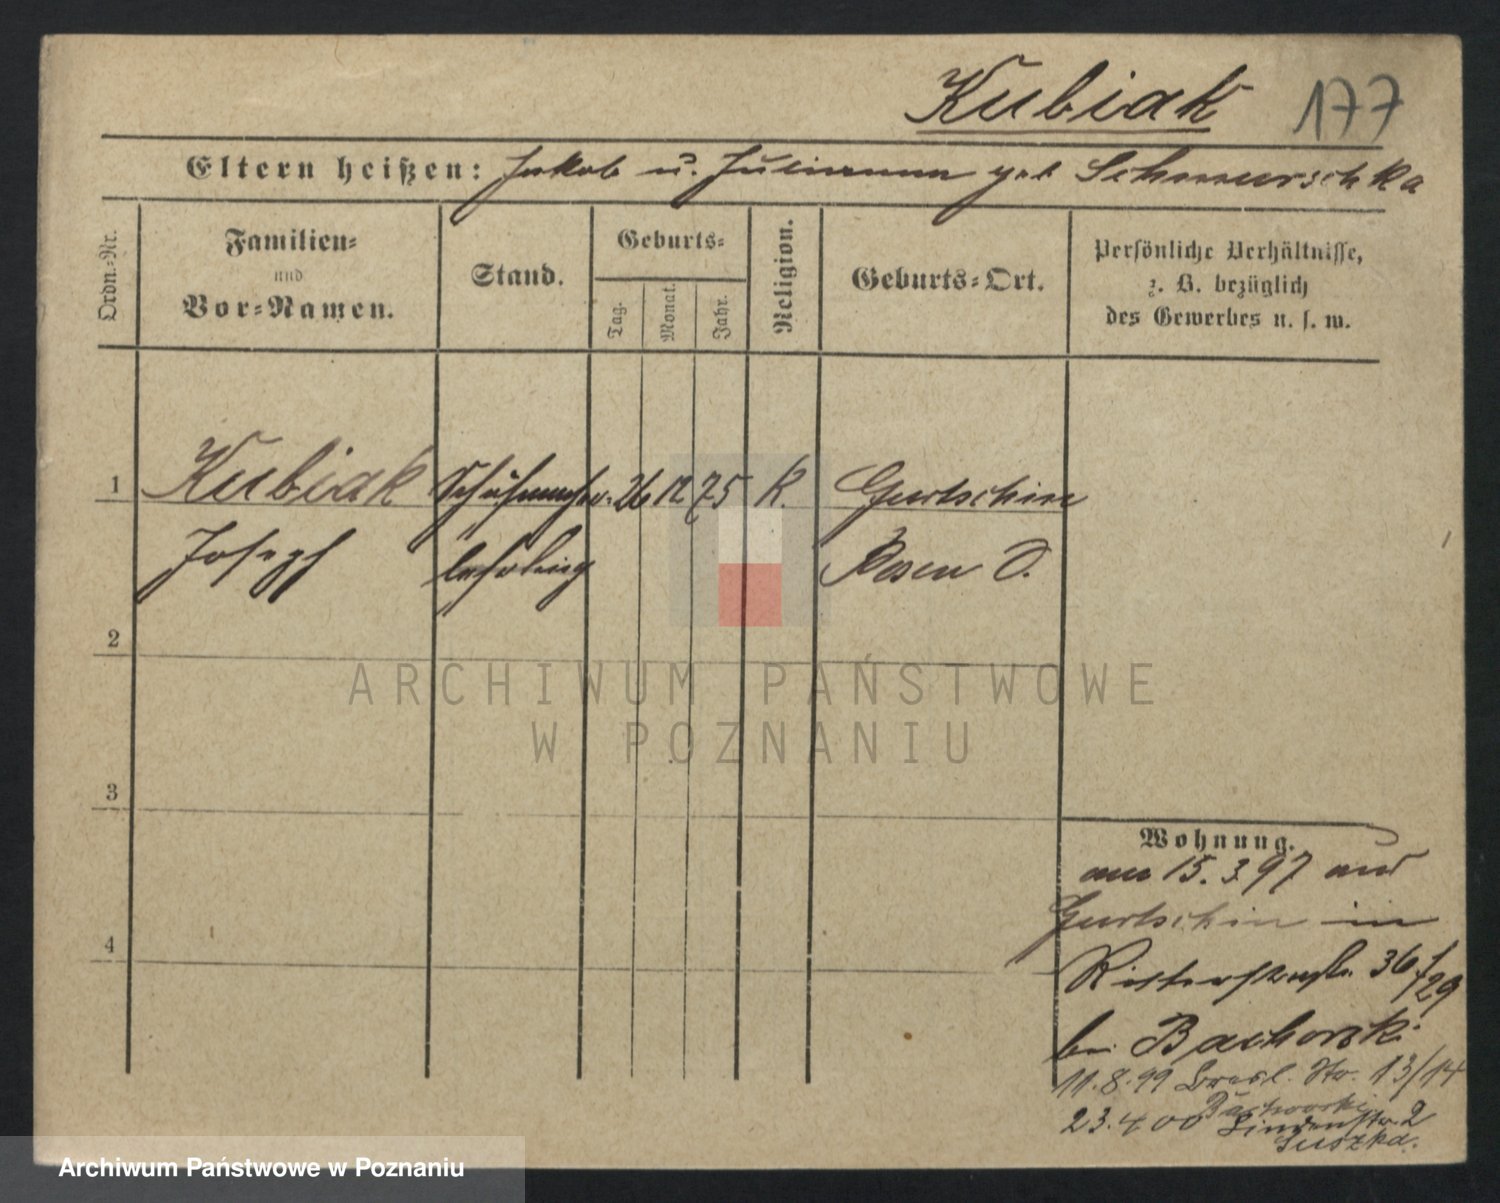 Kubiak 177
Eltern heißen: Jakob u. Julianna geb Schmurschka
Ordn.-Nr.
Familien-
und
Vor-Namen.
Stand.
Geburts-
Tag.
Monat.
Jahr.
Religion.
Geburts-Ort.
Persönliche Verhältnisse,
z. B. bezüglich
des Gewerbes u. s. w.
1 Kubiak Schuhmacher- 26 12 75 K. Gurtschin
Joseph lehrling Posen O.
2
3
4
Wohnung.
am 15.3.97 aus
Gurtschin in
Ritterstraße 36/29
bei Bachorski
11.8.99 Bresl. Str. 13/14
Bachorski
23.4.00 Lindenstr. 2
Suszka.
ARCHIWUM PAŃSTWOWE
W POZNANIU
Archiwum Państwowe w Poznaniu